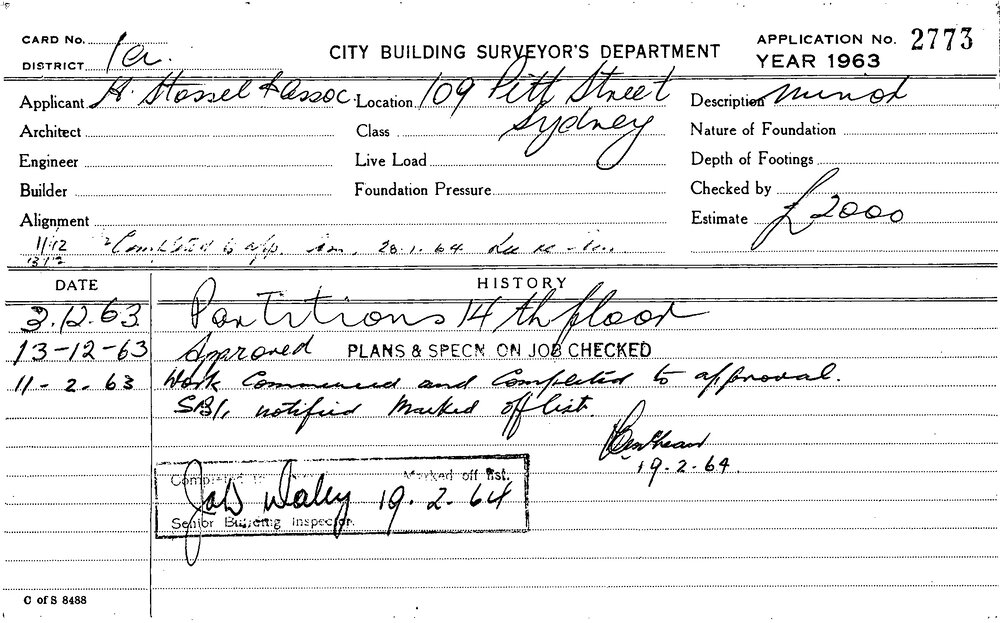 CARD No.
DISTRICT 1a.
CITY BUILDING SURVEYOR'S DEPARTMENT
APPLICATION No. 2773
YEAR 1963
Applicant H. Stossel & Assoc. Location 109 Pitt Street Description Minor
Architect Class Sydney Nature of Foundation
Engineer Live Load Depth of Footings
Builder Foundation Pressure Checked by
Alignment Estimate £2000
11/12 Completed to app. 28.1.64
13/12
DATE HISTORY
3.12.63 Partitions 14th floor
13-12-63 Approved PLANS & SPECN. ON JOB CHECKED
11-2-63 Work Commenced and Completed to approval.
SBI, notified Marked off list.
19.2.64.
Completed Marked off list.
Daley 19.2.64
Senior Building Inspector.
C of S 8488